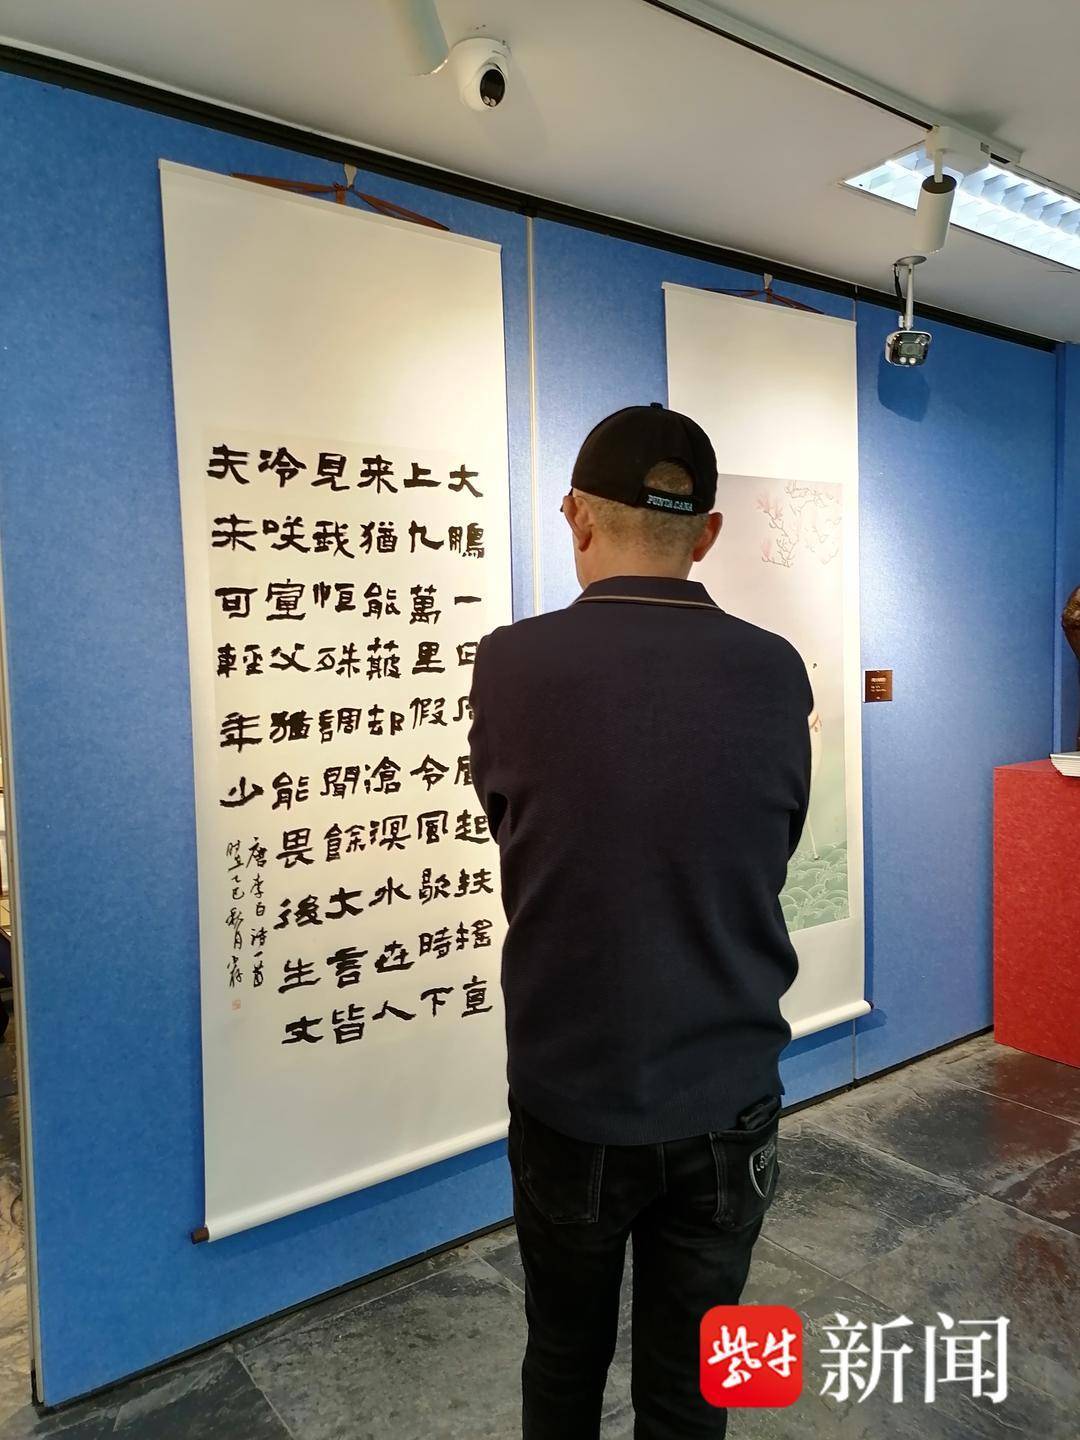 大鵬一日同風起扶搖直
上九萬里假令風歇時下
来猶能簸却滄溟水世人
見我恒殊調聞餘大言皆
冷咲宣父猶能畏後生丈
夫未可輕年少
唐李白詩一首
時在乙巳秋月
PUNTA CANA
紫牛新闻